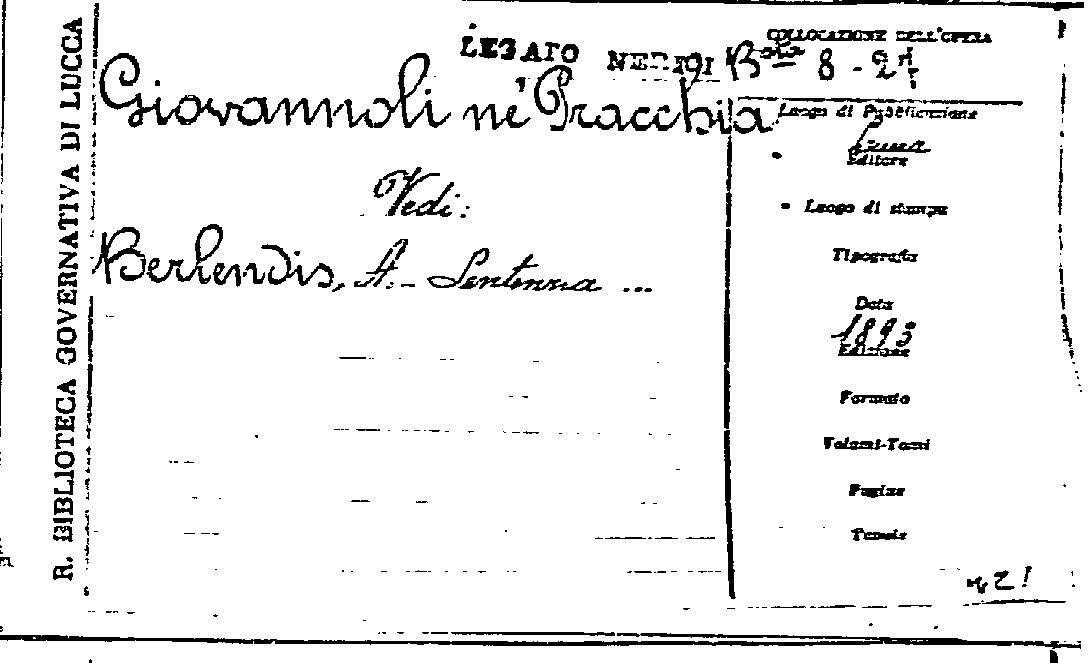 R. BIBLIOTECA GOVERNATIVA DI LUCCA
LEGATO NERIGI
COLLOCAZIONE DELL'OPERA
Bta 8 - 27
Giovannoli né Pracchia
Vedi:
Berlendis, A. - Sentenza ...
Luogo di Pubblicazione
Lucca
Editore
Luogo di stampa
Tipografia
Data
1893
Edizione
Formato
Volumi-Tomi
Pagine
Tavole